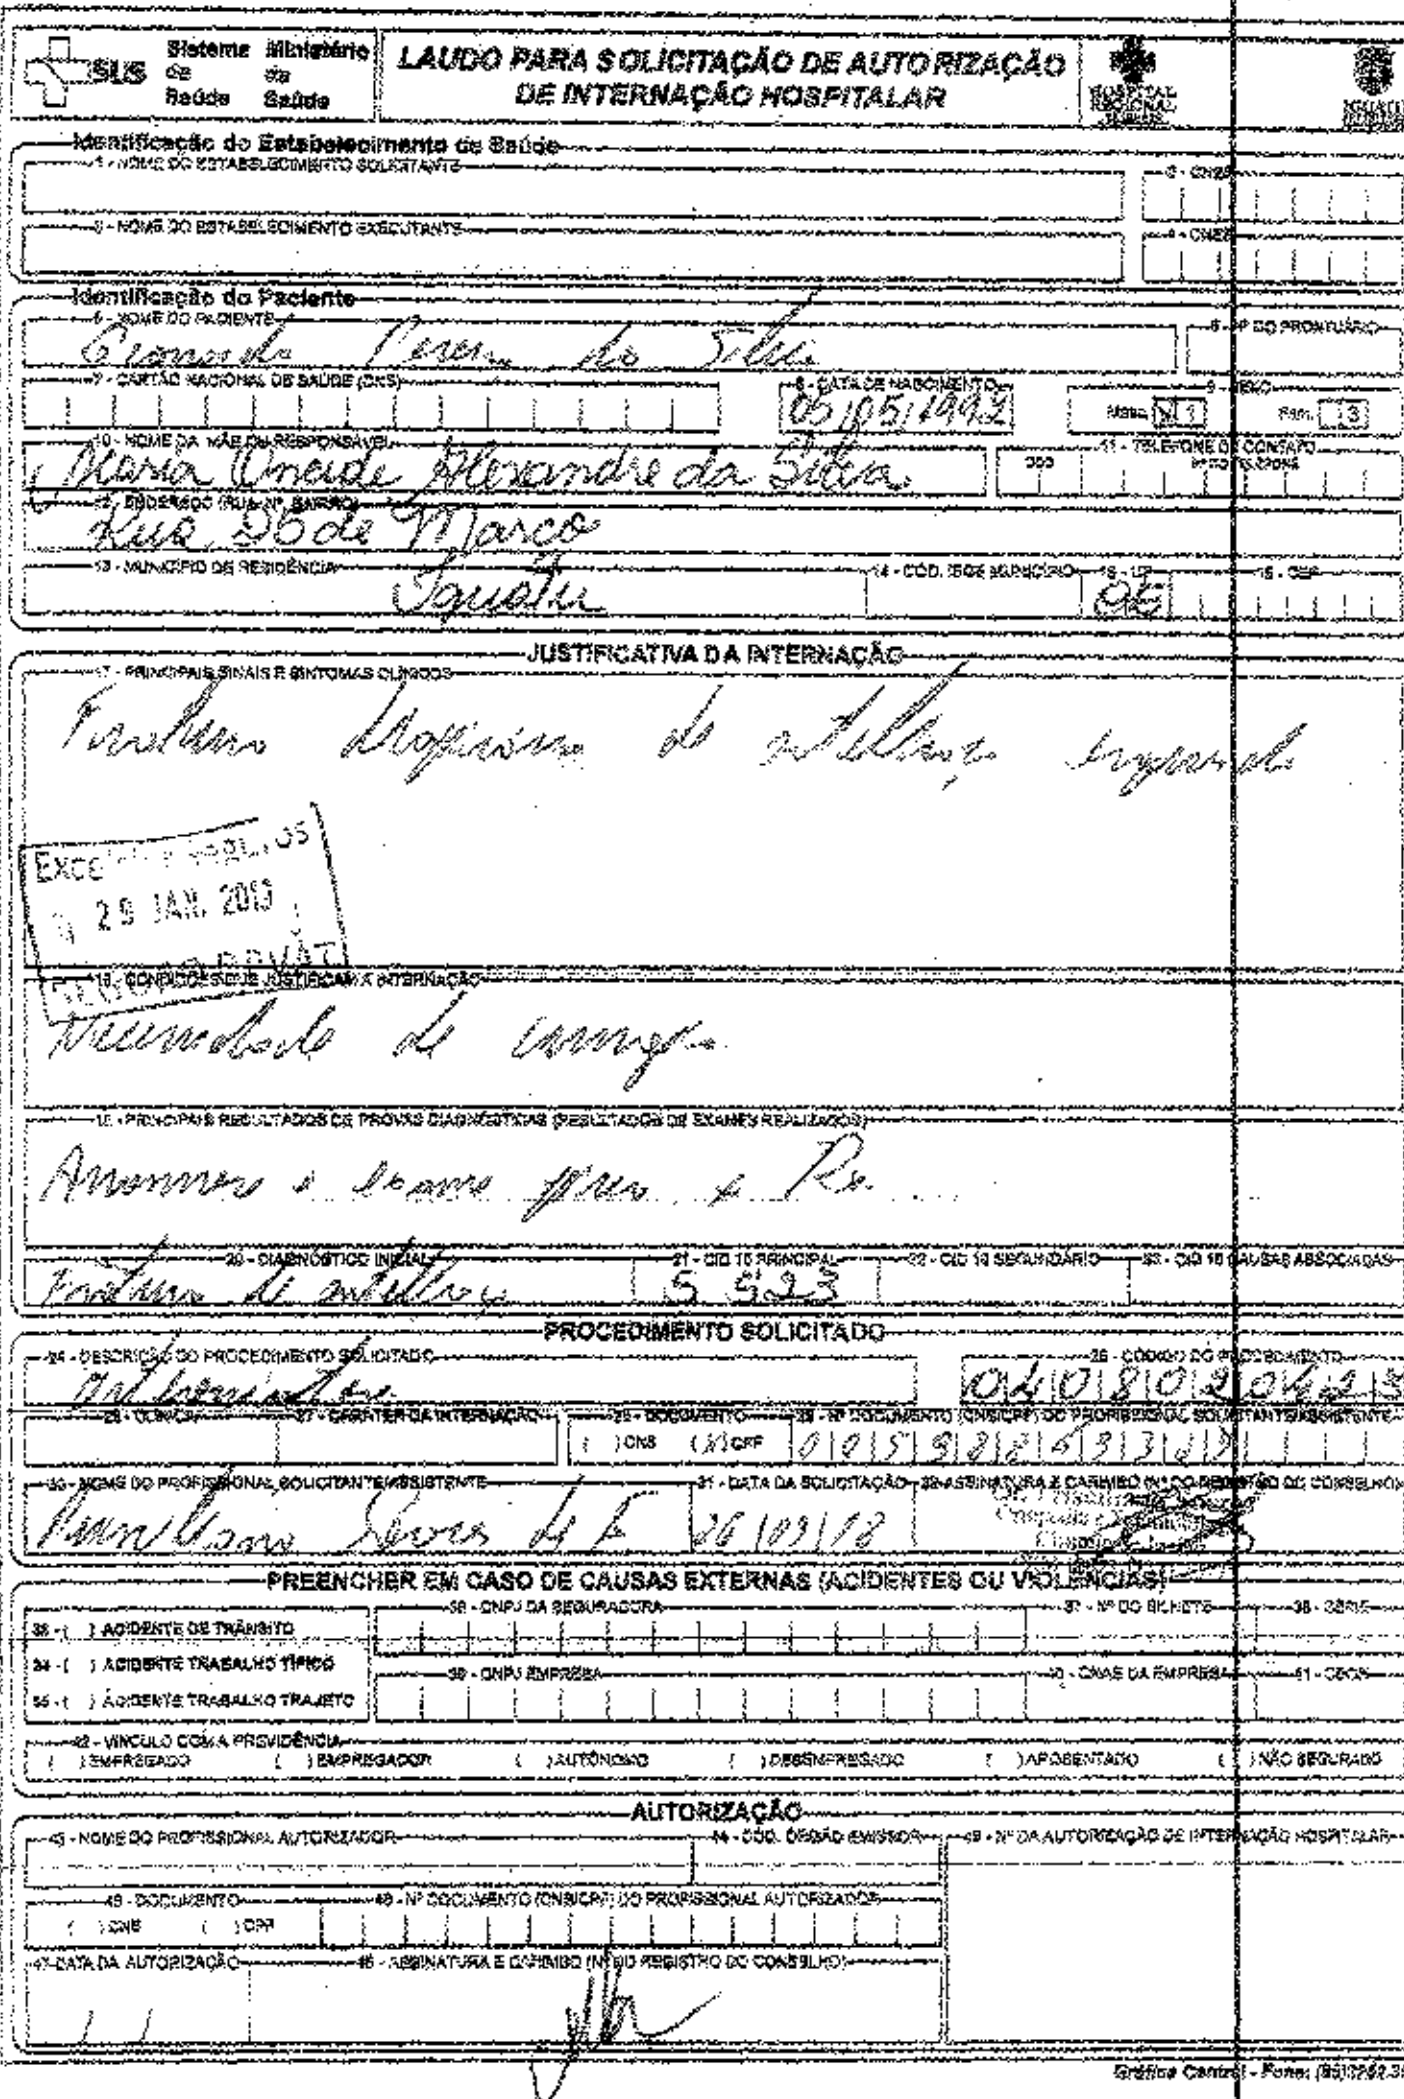 SUS
Sistema Ministério
de da
Saúde Saúde
LAUDO PARA SOLICITAÇÃO DE AUTORIZAÇÃO
DE INTERNAÇÃO HOSPITALAR
HOSPITAL
REGIONAL
IGUATU
Identificação do Estabelecimento de Saúde
1 - NOME DO ESTABELECIMENTO SOLICITANTE
2 - CNES
3 - NOME DO ESTABELECIMENTO EXECUTANTE
4 - CNES
Identificação do Paciente
5 - NOME DO PACIENTE
6 - Nº DO PRONTUÁRIO
da Silva
7 - CARTÃO NACIONAL DE SAÚDE (CNS)
8 - DATA DE NASCIMENTO
9 - SEXO
05/05/1992
Masc. 1
Fem. 3
10 - NOME DA MÃE OU RESPONSÁVEL
11 - TELEFONE DE CONTATO
DDD
Maria Oneide Alexandre da Silva
12 - ENDEREÇO (RUA, Nº, BAIRRO)
Rua de Março
13 - MUNICÍPIO DE RESIDÊNCIA
14 - CÓD. IBGE MUNICÍPIO
15 - UF
16 - CEP
Iguatu
CE
JUSTIFICATIVA DA INTERNAÇÃO
17 - PRINCIPAIS SINAIS E SINTOMAS CLÍNICOS
Fratura de antebraço
29 JAN. 2013
18 - CONDIÇÕES QUE JUSTIFICAM A INTERNAÇÃO
Necessidade de cirurgia
19 - PRINCIPAIS RESULTADOS DE PROVAS DIAGNÓSTICAS (RESULTADOS DE EXAMES REALIZADOS)
Anamnese e exame físico e Rx
20 - DIAGNÓSTICO INICIAL
21 - CID 10 PRINCIPAL
22 - CID 10 SECUNDÁRIO
23 - CID 10 CAUSAS ASSOCIADAS
Fratura de antebraço
S 523
PROCEDIMENTO SOLICITADO
24 - DESCRIÇÃO DO PROCEDIMENTO SOLICITADO
25 - CÓDIGO DO PROCEDIMENTO
0408020423
26 - CLÍNICA
27 - CARÁTER DA INTERNAÇÃO
28 - DOCUMENTO
29 - Nº DOCUMENTO (CNS/CPF) DO PROFISSIONAL SOLICITANTE/ASSISTENTE
( ) CNS (X) CPF
30 - NOME DO PROFISSIONAL SOLICITANTE/ASSISTENTE
31 - DATA DA SOLICITAÇÃO
32 - ASSINATURA E CARIMBO (Nº DO REGISTRO DO CONSELHO)
PREENCHER EM CASO DE CAUSAS EXTERNAS (ACIDENTES OU VIOLÊNCIAS)
33 - ( ) ACIDENTE DE TRÂNSITO
36 - CNPJ DA SEGURADORA
37 - Nº DO BILHETE
38 - SÉRIE
34 - ( ) ACIDENTE TRABALHO TÍPICO
39 - CNPJ EMPRESA
40 - CNAE DA EMPRESA
41 - CBOR
35 - ( ) ACIDENTE TRABALHO TRAJETO
42 - VÍNCULO COM A PREVIDÊNCIA
( ) EMPREGADO ( ) EMPREGADOR ( ) AUTÔNOMO ( ) DESEMPREGADO ( ) APOSENTADO ( ) NÃO SEGURADO
AUTORIZAÇÃO
43 - NOME DO PROFISSIONAL AUTORIZADOR
44 - CÓD. ÓRGÃO EMISSOR
49 - Nº DA AUTORIZAÇÃO DE INTERNAÇÃO HOSPITALAR
45 - DOCUMENTO
46 - Nº DOCUMENTO (CNS/CPF) DO PROFISSIONAL AUTORIZADOR
( ) CNS ( ) CPF
47 - DATA DA AUTORIZAÇÃO
48 - ASSINATURA E CARIMBO (Nº DO REGISTRO DO CONSELHO)
Gráfica Central - Fone: